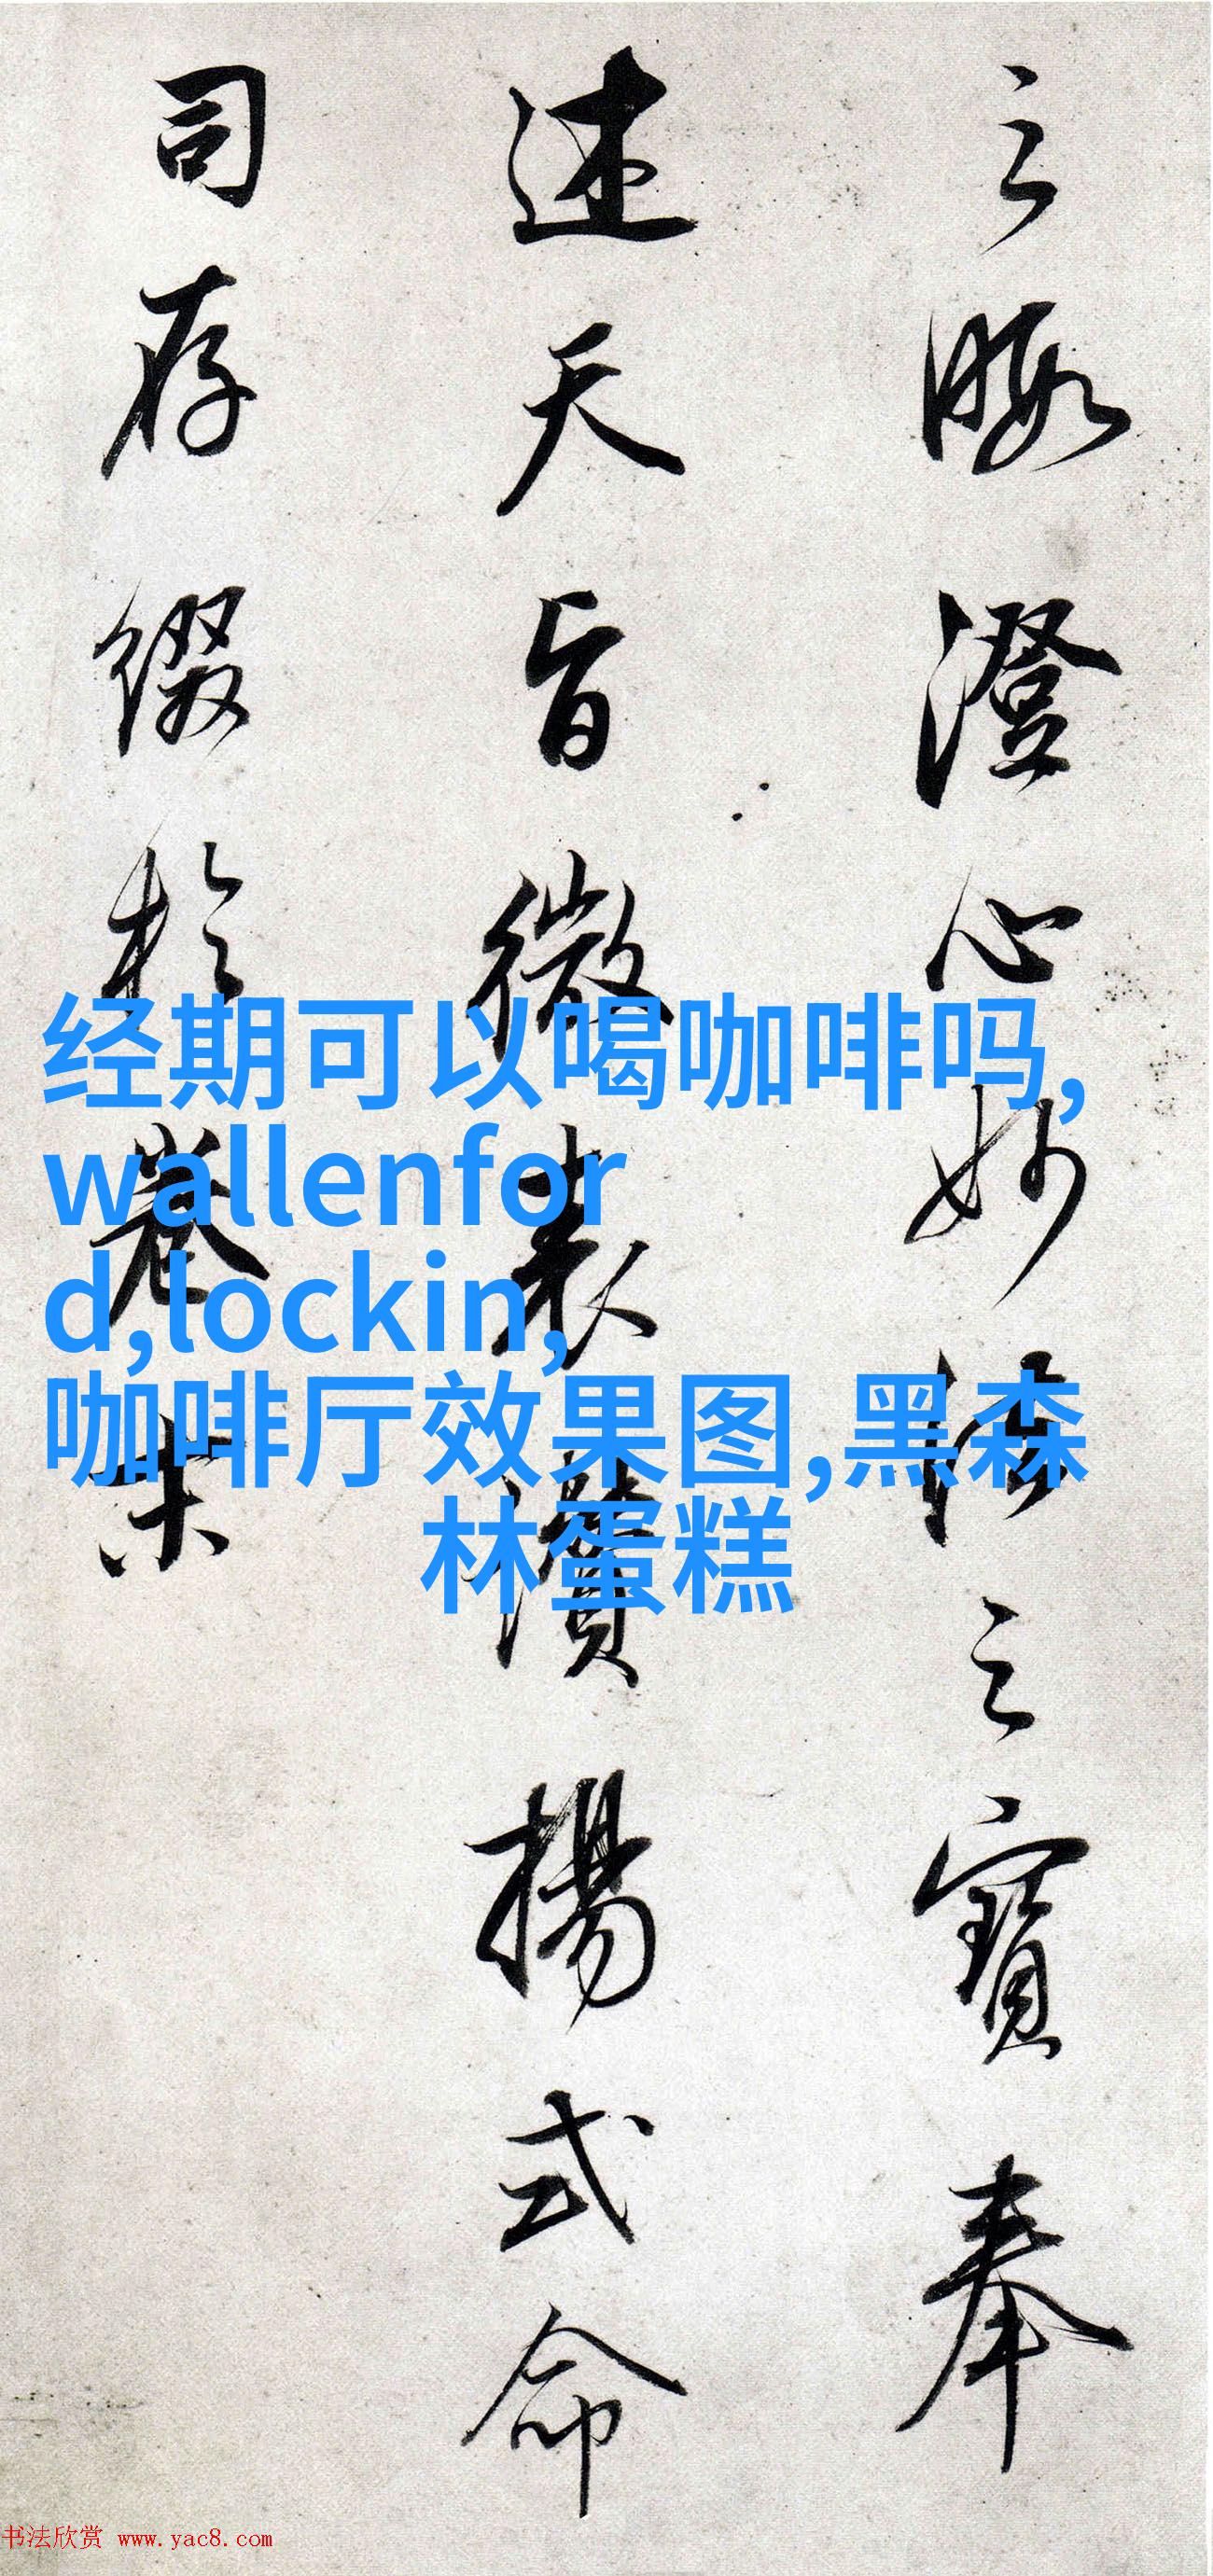 之暇澄心妙法之寶奉
述天旨微表讚揚式命
司存綴於卷末
经期可以喝咖啡吗,
wallenfor
d,lockin,
咖啡厅效果图,黑森
林蛋糕
书法欣赏 www.yac8.com